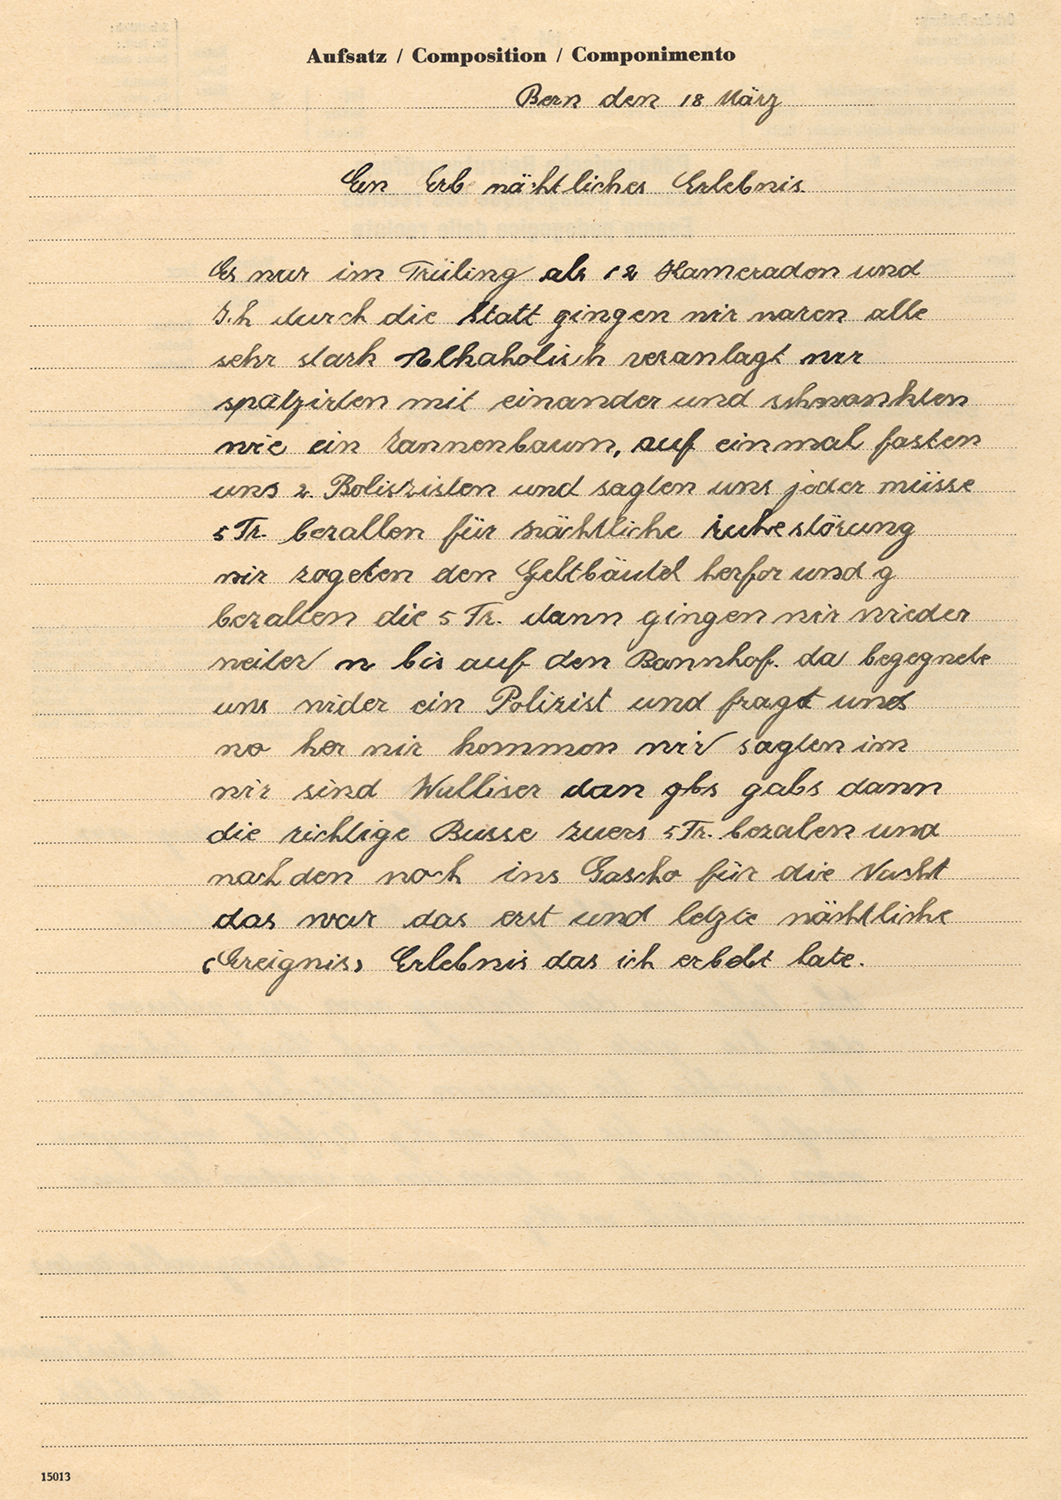 Aufsatz / Composition / Componimento
Bern den 18 März
Ein Erb nächtliches Erlebnis.
Es war im Früling als 12 Kameraden und
Ich durch die Statt gingen wir waren alle
sehr stark Alkaholisch veranlagt wir
spatzirten mit einander und schwankten
wie ein Tannenbaum, auf einmal fasten
uns 2. Boliszisten und sagten uns jeder müsse
5 Fr. bezallen für nächtliche ruhestörung
wir zogeten den Geltbäutel herfor und g
bezalten die 5 Fr. dann gingen wir wieder
weiter w bis auf den Bannhof. da begegnete
uns wider ein Polizist und fragt uns
wo her wir kommen wir sagten im
wir sind Walliser dan gbs gabs dann
die richtige Busse zuers 5 Fr. bezalen und
nach den noch ins Gascho für die Nacht
das war das erst und letzte nächtliche
(Ereignis) Erlebnis das ich erbebt hate.
15013